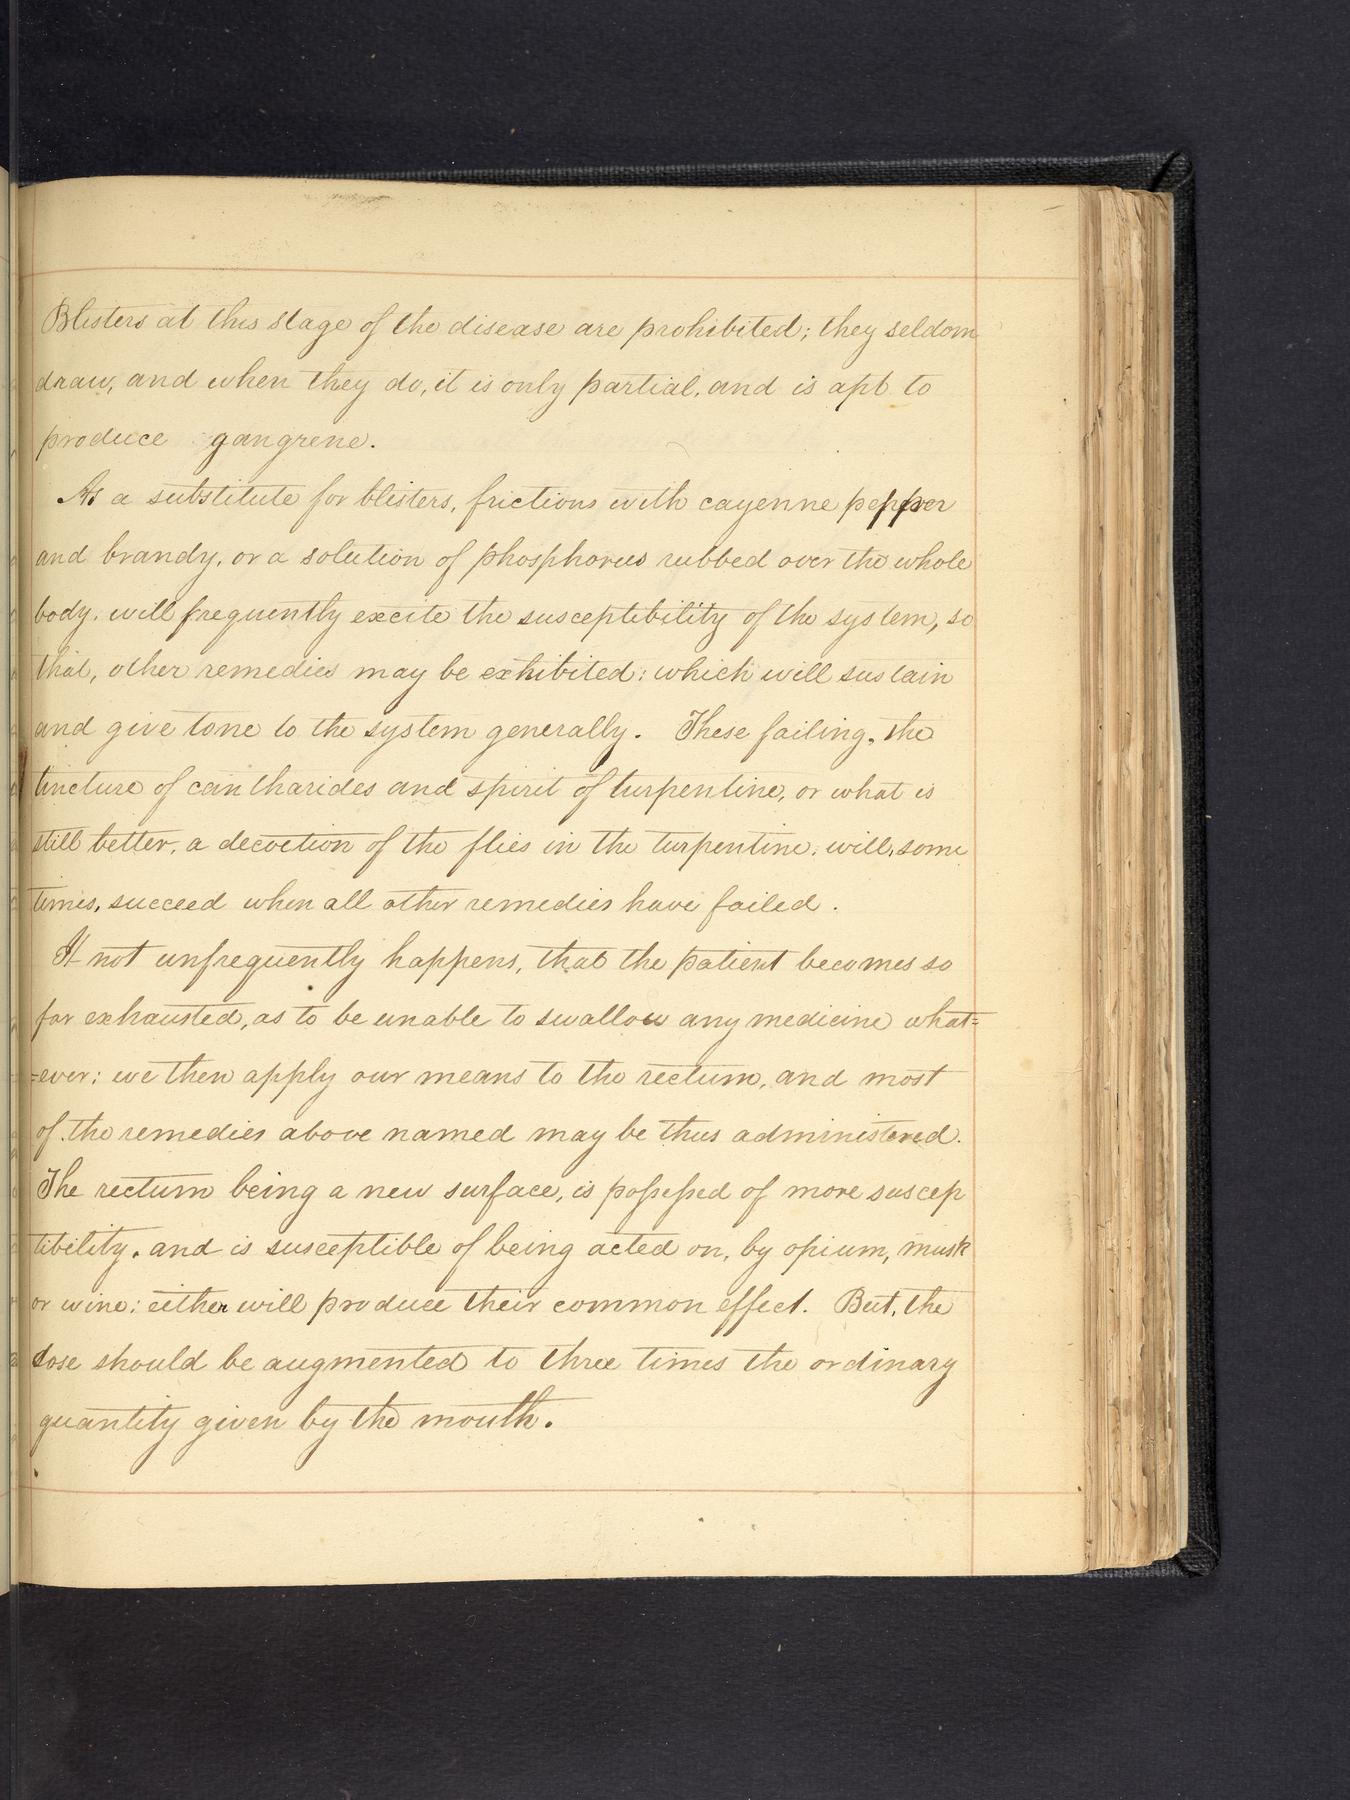 Blisters at this stage of the disease are prohibited; they seldom
draw, and when they do, it is only partial, and is apt to
produce gangrene.
As a substitute for blisters, frictions with cayenne pepper
and brandy, or a solution of phosphorus rubbed over the whole
body, will frequently excite the susceptibility of the system, so
that, other remedies may be exhibited: which will sustain
and give tone to the system generally. These failing, the
tincture of cantharides and spirit of turpentine, or what is
still better, a decoction of the flies in the turpentine, will, some
times, succeed when all other remedies have failed.
It not unfrequently happens, that the patient becomes so
far exhausted, as to be unable to swallow any medicine what=
=ever; we then apply our means to the rectum, and most
of the remedies above named may be thus administered.
The rectum being a new surface, is possessed of more suscep
tibility, and is susceptible of being acted on, by opium, musk
or wine; either will produce their common effect. But, the
dose should be augmented to three times the ordinary
quantity given by the mouth.